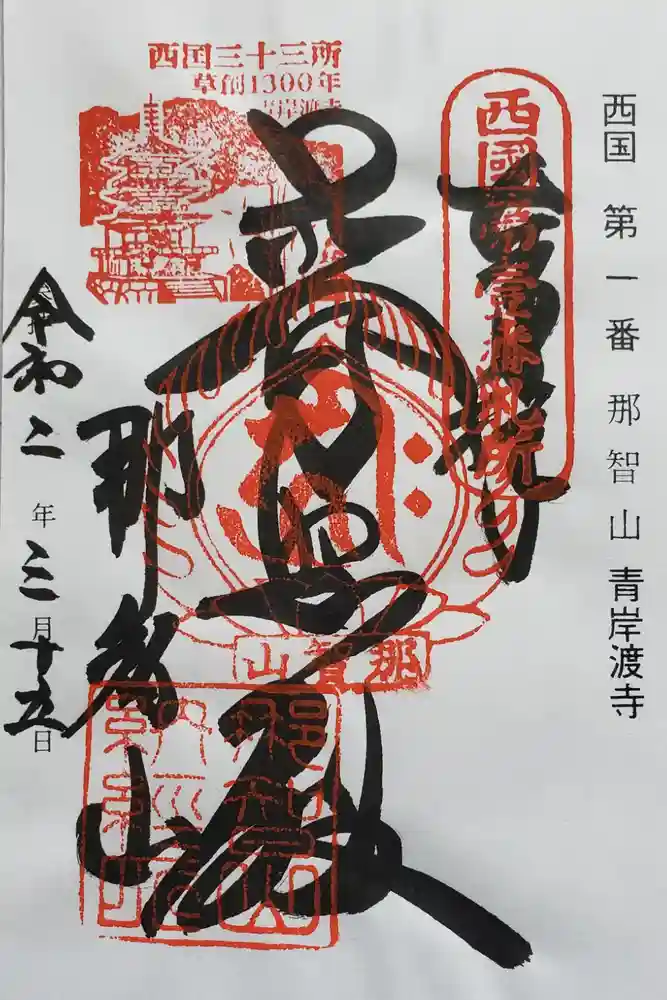 西国 第一番 那智山 青岸渡寺
西國第壹番札所
奉拝
西国三十三所
草創1300年
青岸渡寺
普照殿
那智山
那智山
令和二年三月十五日